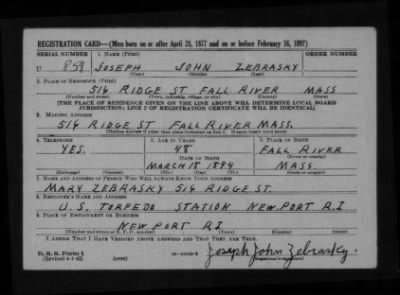 REGISTRATION CARD—(Men born on or after April 28, 1877 and on or before February 16, 1897)
SERIAL NUMBER 1. NAME (Print) ORDER NUMBER
U 859 JOSEPH JOHN ZEBRASKY
(First) (Middle) (Last)
2. PLACE OF RESIDENCE (Print)
516 RIDGE ST FALL RIVER MASS
(Number and street) (Town, township, village, or city) (County) (State)
[THE PLACE OF RESIDENCE GIVEN ON THE LINE ABOVE WILL DETERMINE LOCAL BOARD
JURISDICTION; LINE 2 OF REGISTRATION CERTIFICATE WILL BE IDENTICAL]
3. MAILING ADDRESS
516 RIDGE ST FALL RIVER MASS.
[Mailing address if other than place indicated on line 2. If same insert word same]
4. TELEPHONE 5. AGE IN YEARS 6. PLACE OF BIRTH
YES. 48 FALL RIVER
DATE OF BIRTH (Town or county)
MARCH 18 1894 MASS.
(Exchange) (Number) (Mo.) (Day) (Yr.) (State or country)
7. NAME AND ADDRESS OF PERSON WHO WILL ALWAYS KNOW YOUR ADDRESS
MARY ZEBRASKY 516 RIDGE ST.
8. EMPLOYER'S NAME AND ADDRESS
U.S. TORPEDO STATION NEWPORT R.I
9. PLACE OF EMPLOYMENT OR BUSINESS
NEWPORT RI
(Number and street or R. F. D. number) (Town) (County) (State)
I AFFIRM THAT I HAVE VERIFIED ABOVE ANSWERS AND THAT THEY ARE TRUE.
D. S. S. Form 1
(Revised 4-1-42) (over) Joseph John Zebrasky.